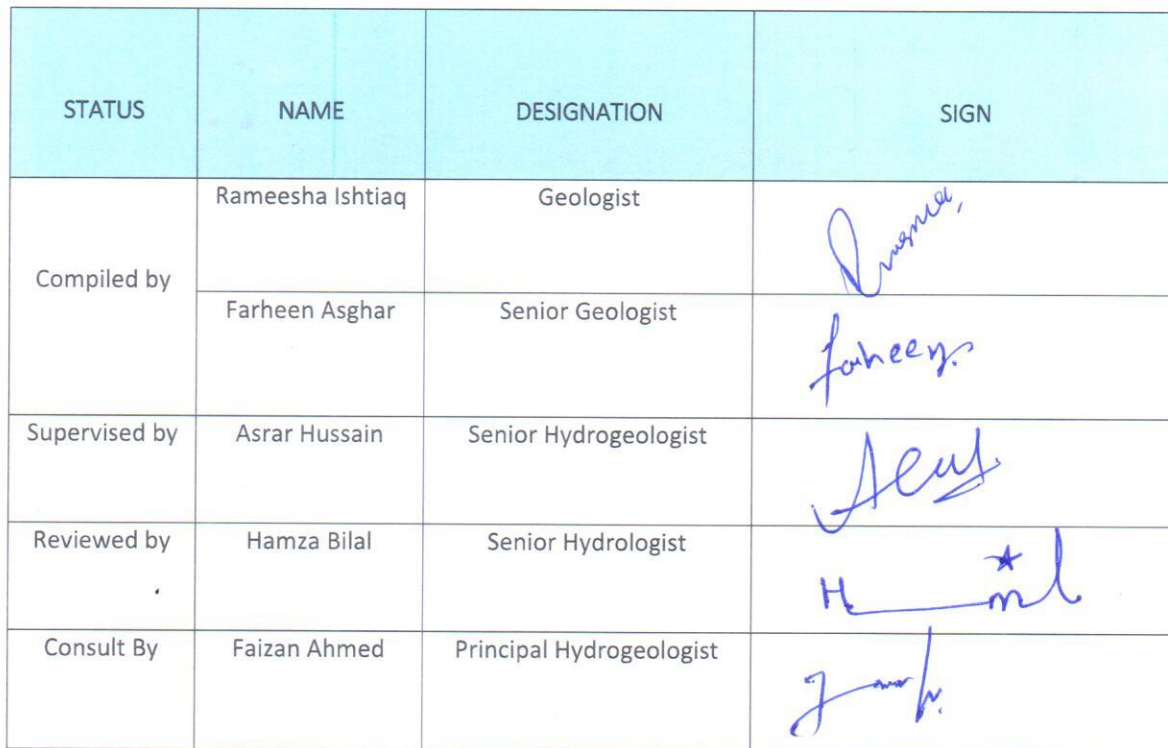 STATUS NAME DESIGNATION SIGN
Rameesha Ishtiaq Geologist
Compiled by
Farheen Asghar Senior Geologist
Farheen
Supervised by Asrar Hussain Senior Hydrogeologist
Reviewed by Hamza Bilal Senior Hydrologist
Consult By Faizan Ahmed Principal Hydrogeologist